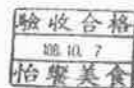 驗收合格
108.10.7
怡樂美食